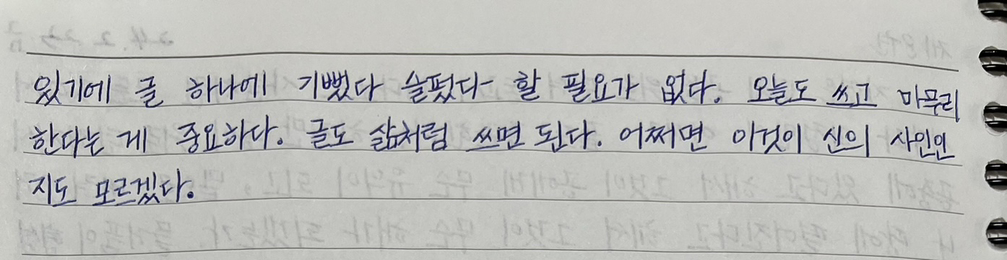 있기에 글 하나에 기뻤다 슬펐다 할 필요가 없다. 오늘도 쓰고 마무리
한다는 게 중요하다. 글도 삶처럼 쓰면 된다. 어쩌면 이것이 신의 사인인
지도 모르겠다.